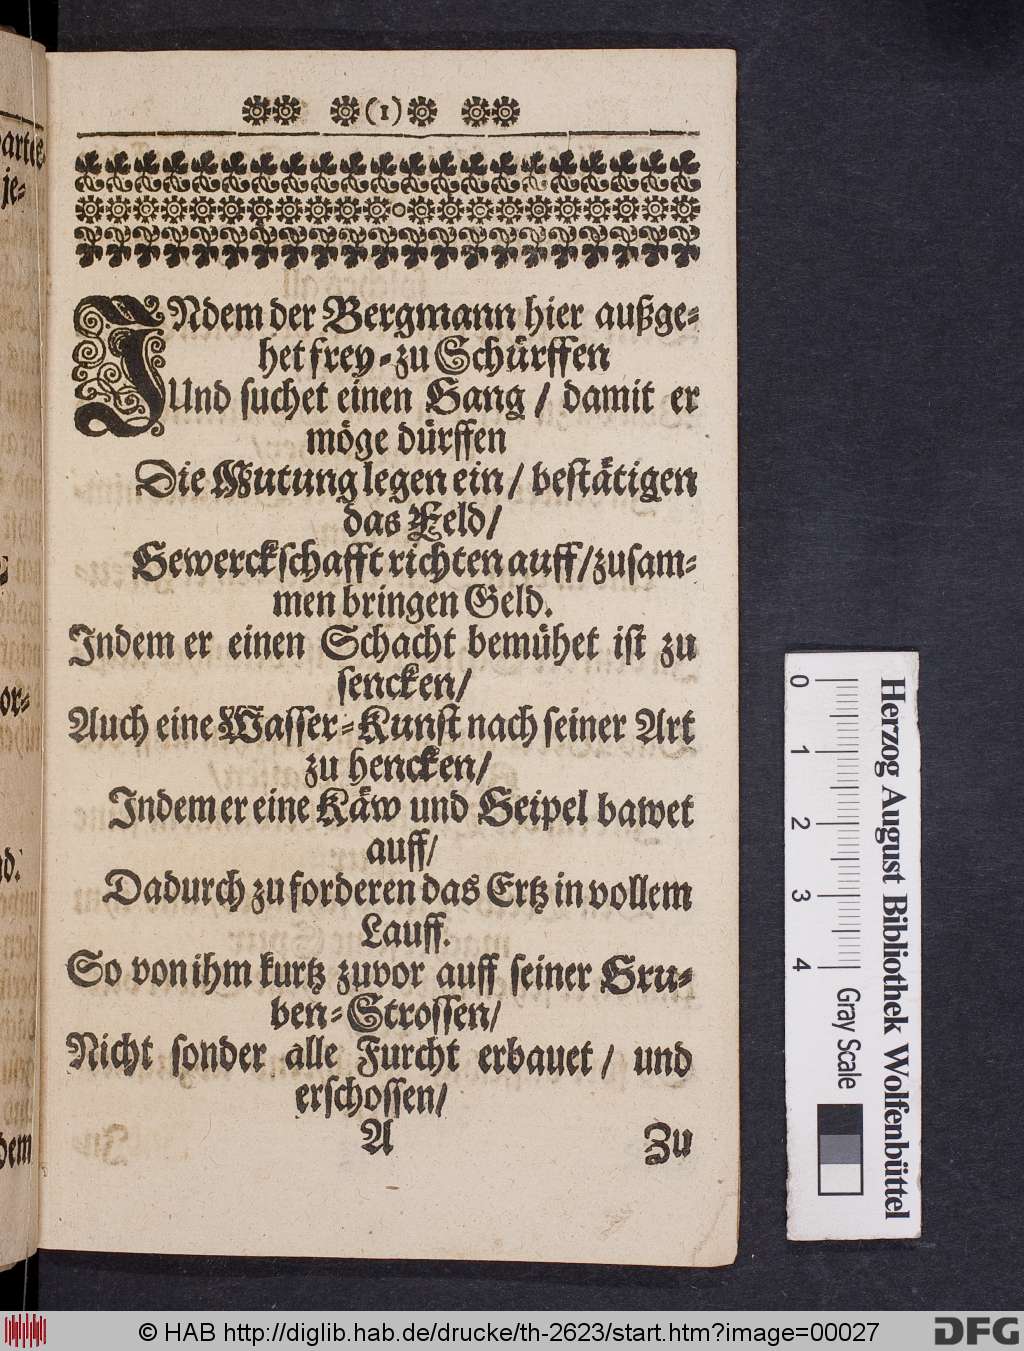 (1)
INdem der Bergmann hier außge-
het frey-zu Schürffen
Und suchet einen Gang / damit er
möge dürffen
Die Mutung legen ein / bestätigen
das Feld /
Gewerckschafft richten auff / zusam-
men bringen Geld.
Indem er einen Schacht bemühet ist zu
sencken /
Auch eine Wasser-Kunst nach seiner Art
zu hencken /
Indem er eine Käw und Geipel bawet
auff /
Dadurch zu forderen das Ertz in vollem
Lauff.
So von ihm kurtz zuvor auff seiner Gru-
ben-Strossen /
Nicht sonder alle Furcht erbauet / und
erschossen /
A Zu
je-
or-
dem
0 1 2 3 4
Herzog August Bibliothek Wolfenbüttel
Gray Scale
© HAB http://diglib.hab.de/drucke/th-2623/start.htm?image=00027
DFG